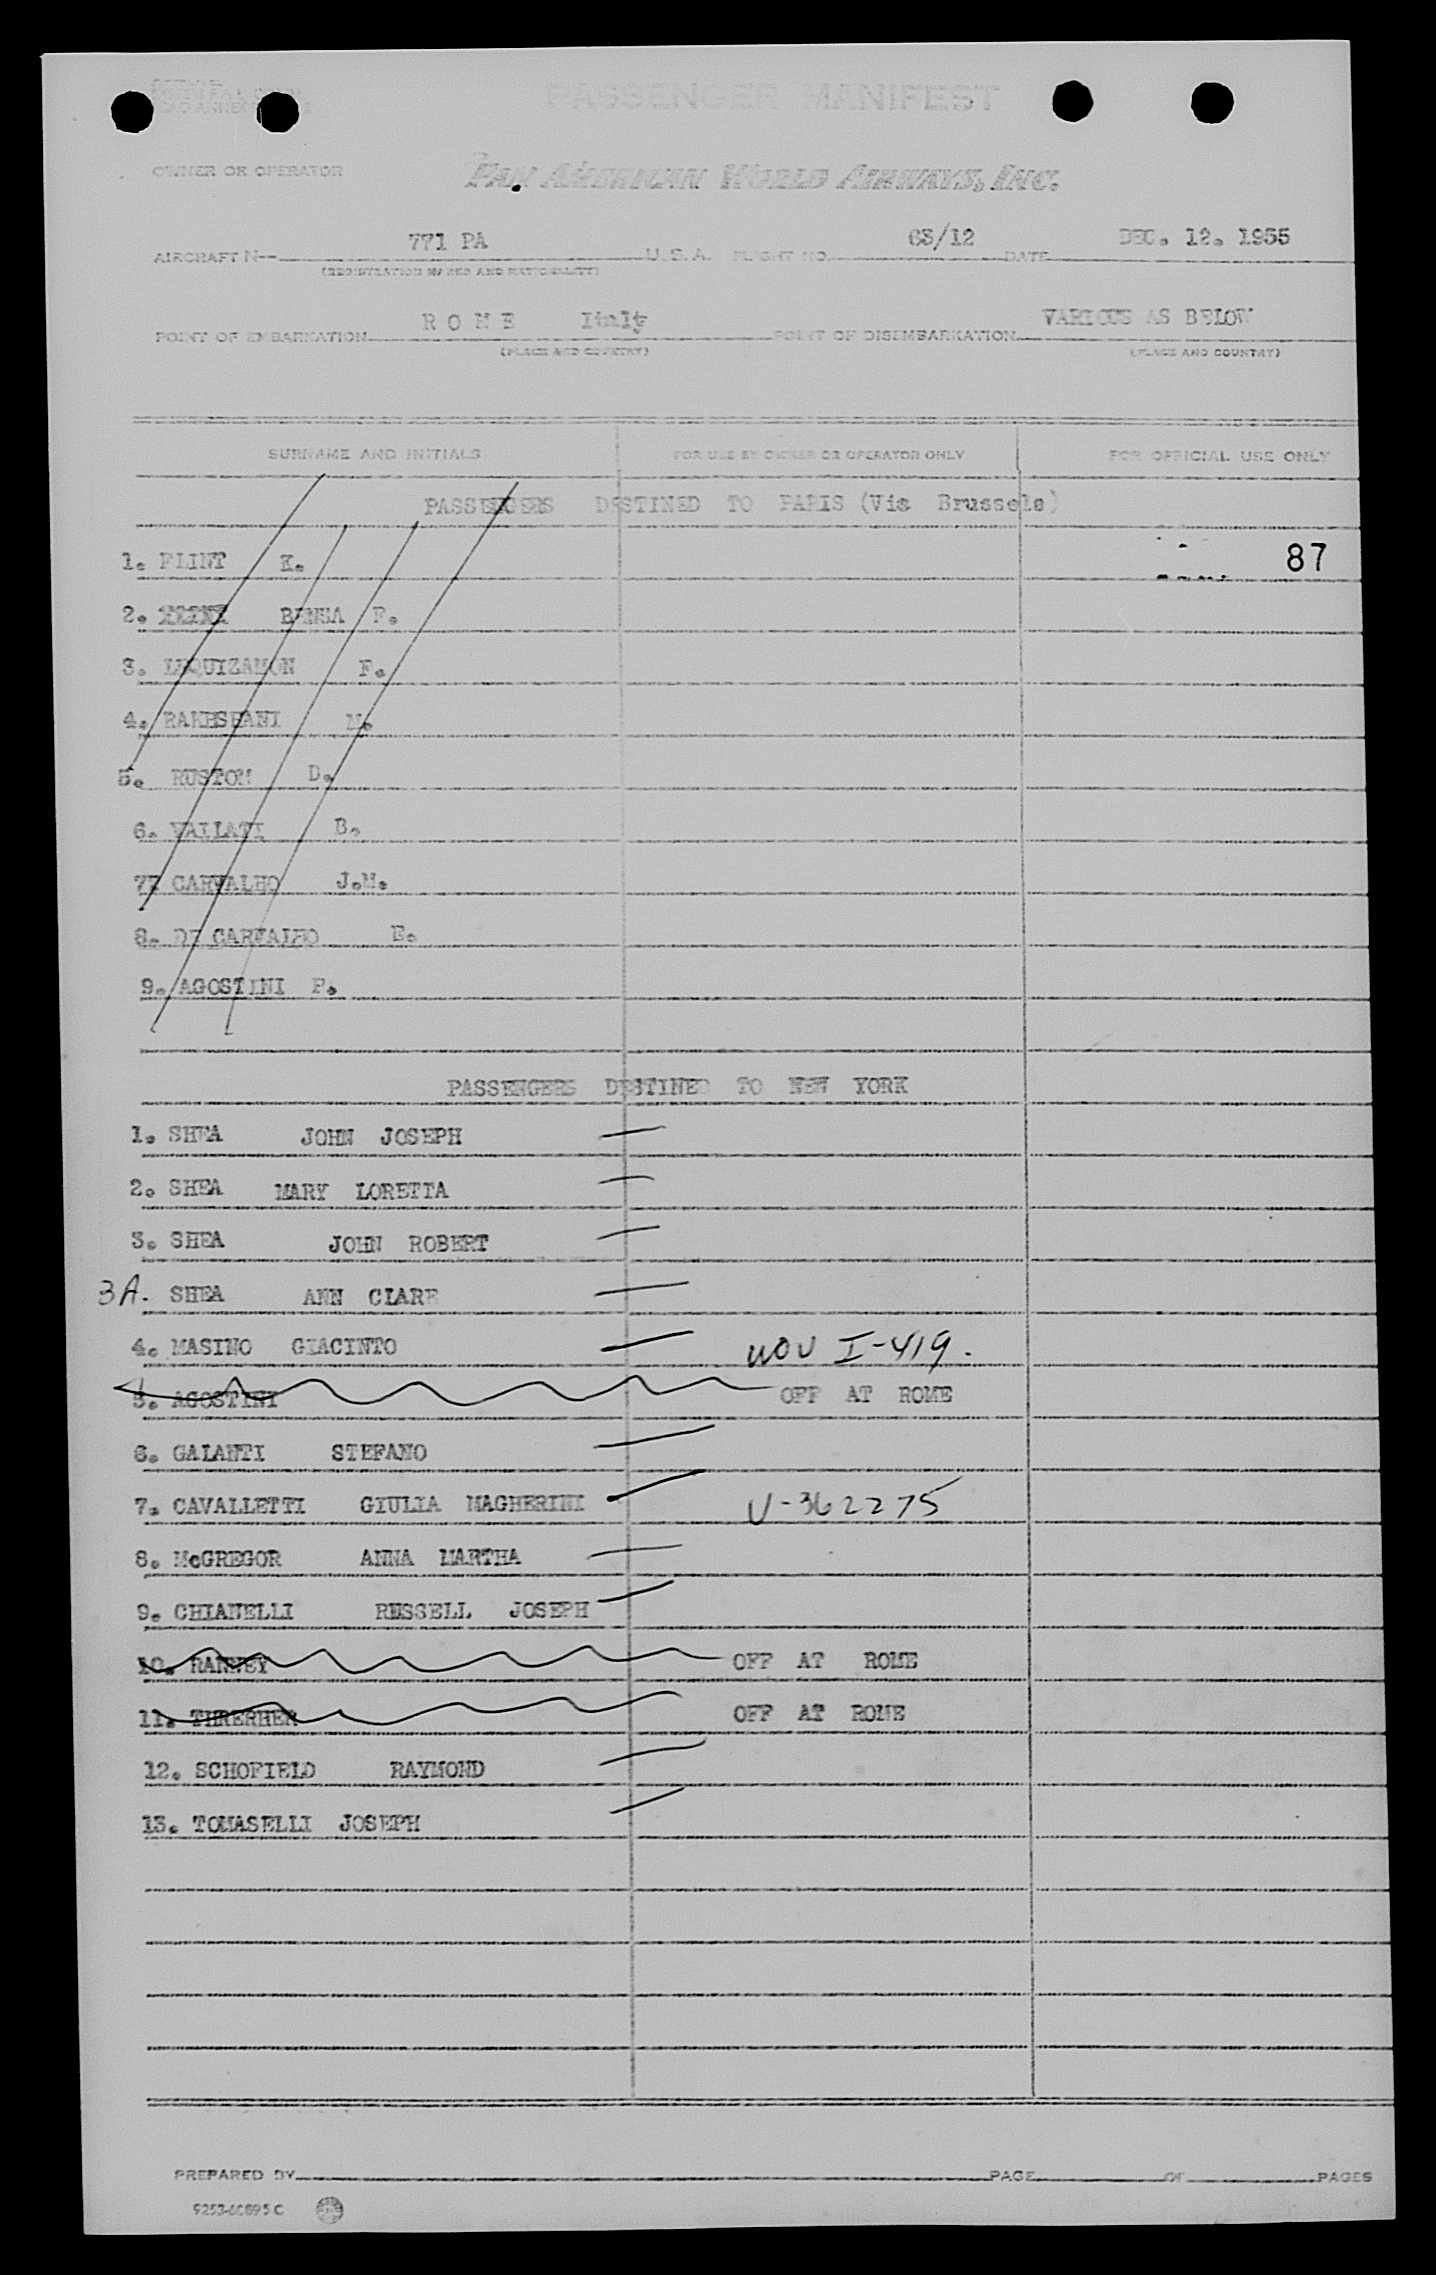 PASSENGER MANIFEST
OWNER OR OPERATOR PAN AMERICAN WORLD AIRWAYS, INC.
AIRCRAFT N-- 771 PA U.S.A. FLIGHT NO. 63/12 DATE DEC. 12. 1955
(REGISTRATION MARKS AND NATIONALITY)
POINT OF EMBARKATION R O M E Italy POINT OF DISEMBARKATION VARIOUS AS BELOW
(PLACE AND COUNTRY) (PLACE AND COUNTRY)
SURNAME AND INITIALS FOR USE BY OWNER OR OPERATOR ONLY FOR OFFICIAL USE ONLY
PASSENGERS DESTINED TO PARIS (Via Brussels)
1. FLINT K. 87
2. BENSA F.
3. LEQUIZAMON F.
4. RAKHSHANI M.
5. RUSTOM D.
6. VAILATI B.
7. CARVALHO J.M.
8. DE CARVALHO E.
9. AGOSTINI P.
PASSENGERS DESTINED TO NEW YORK
1. SHEA JOHN JOSEPH
2. SHEA MARY LORETTA
3. SHEA JOHN ROBERT
3A. SHEA ANN CLARE
4. MASINO GIACINTO NOV I-419.
5. AGOSTINI OFF AT ROME
6. GALANTI STEFANO
7. CAVALLETTI GIULIA MAGHERINI V-362275
8. McGREGOR ANNA MARTHA
9. CHIANELLI RUSSELL JOSEPH
10. RANNEY OFF AT ROME
11. THRERHER OFF AT ROME
12. SCHOFIELD RAYMOND
13. TOMASELLI JOSEPH
PREPARED BY PAGE OF PAGES
9253-60895 C